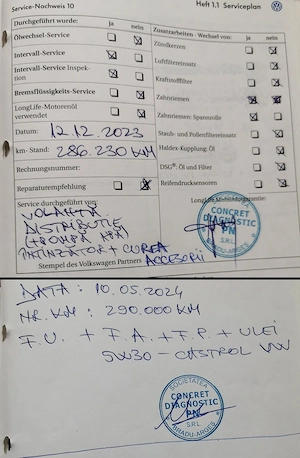 Service-Nachweis 10
Heft 1.1 Serviceplan
Durchgeführt wurde: ja nein
Zusatzarbeiten - Wechsel von: ja nein
Ölwechsel-Service
Zündkerzen
Intervall-Service
Luftfiltereinsatz
Intervall-Service Inspektion
Kraftstofffilter
Bremsflüssigkeits-Service
Zahnriemen
LongLife-Motorenöl verwendet
Zahnriemen: Spannrolle
Datum: 12.12.2023
Staub- und Pollenfiltereinsatz
km- Stand: 286.230 KM
Haldex-Kupplung: Öl
Rechnungsnummer:
DSG®: Öl und Filter
Reparaturempfehlung
Reifendrucksensoren
Service durchgeführt von:
VOLANTA
DISTRIBUTIE
(+POMPA APA)
INTINZATOR + CUREA
ACCESORII
CONCRET
DIAGNOSTIC
PN
S.R.L.
Stempel des Volkswagen Partners
DATA : 10.05.2024
NR. KM : 290.000 KM
F.U. + F.A. + F.P. + ULEI
5W30 - CASTROL VW
SOCIETATEA
CONCRET
DIAGNOSTIC
PN
S.R.L.
BRADU-ARGEȘ